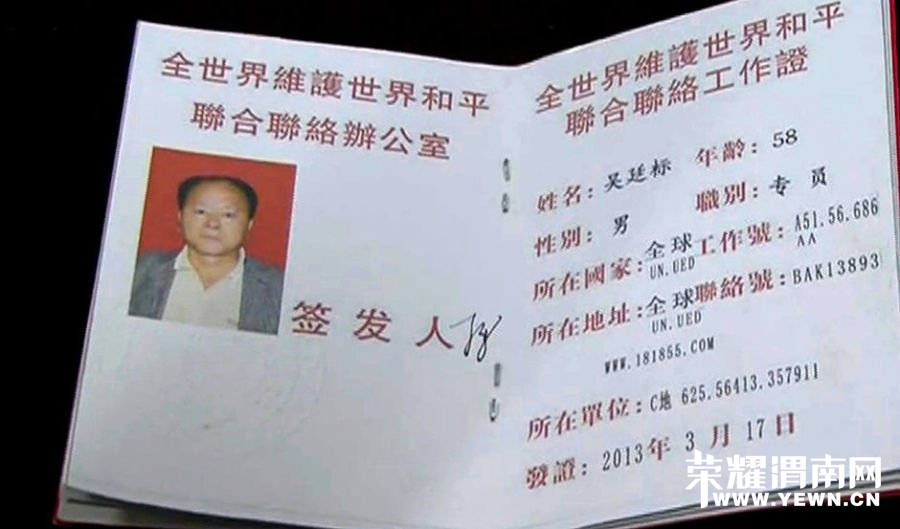 全世界維護世界和平
聯合聯絡辦公室
签发人
全世界維護世界和平
聯合聯絡工作證
姓名：吴廷标 年齡：58
性别：男 職别：专员
所在國家：全球 工作號：A51.56.686
UN.UED AA
所在地址：全球 聯絡號：BAK13893
UN.UED
WWW.181855.COM
所在單位：C地 625.56413.357911
發證：2013年3月17日
荣耀渭南网
WWW.YEWN.CN